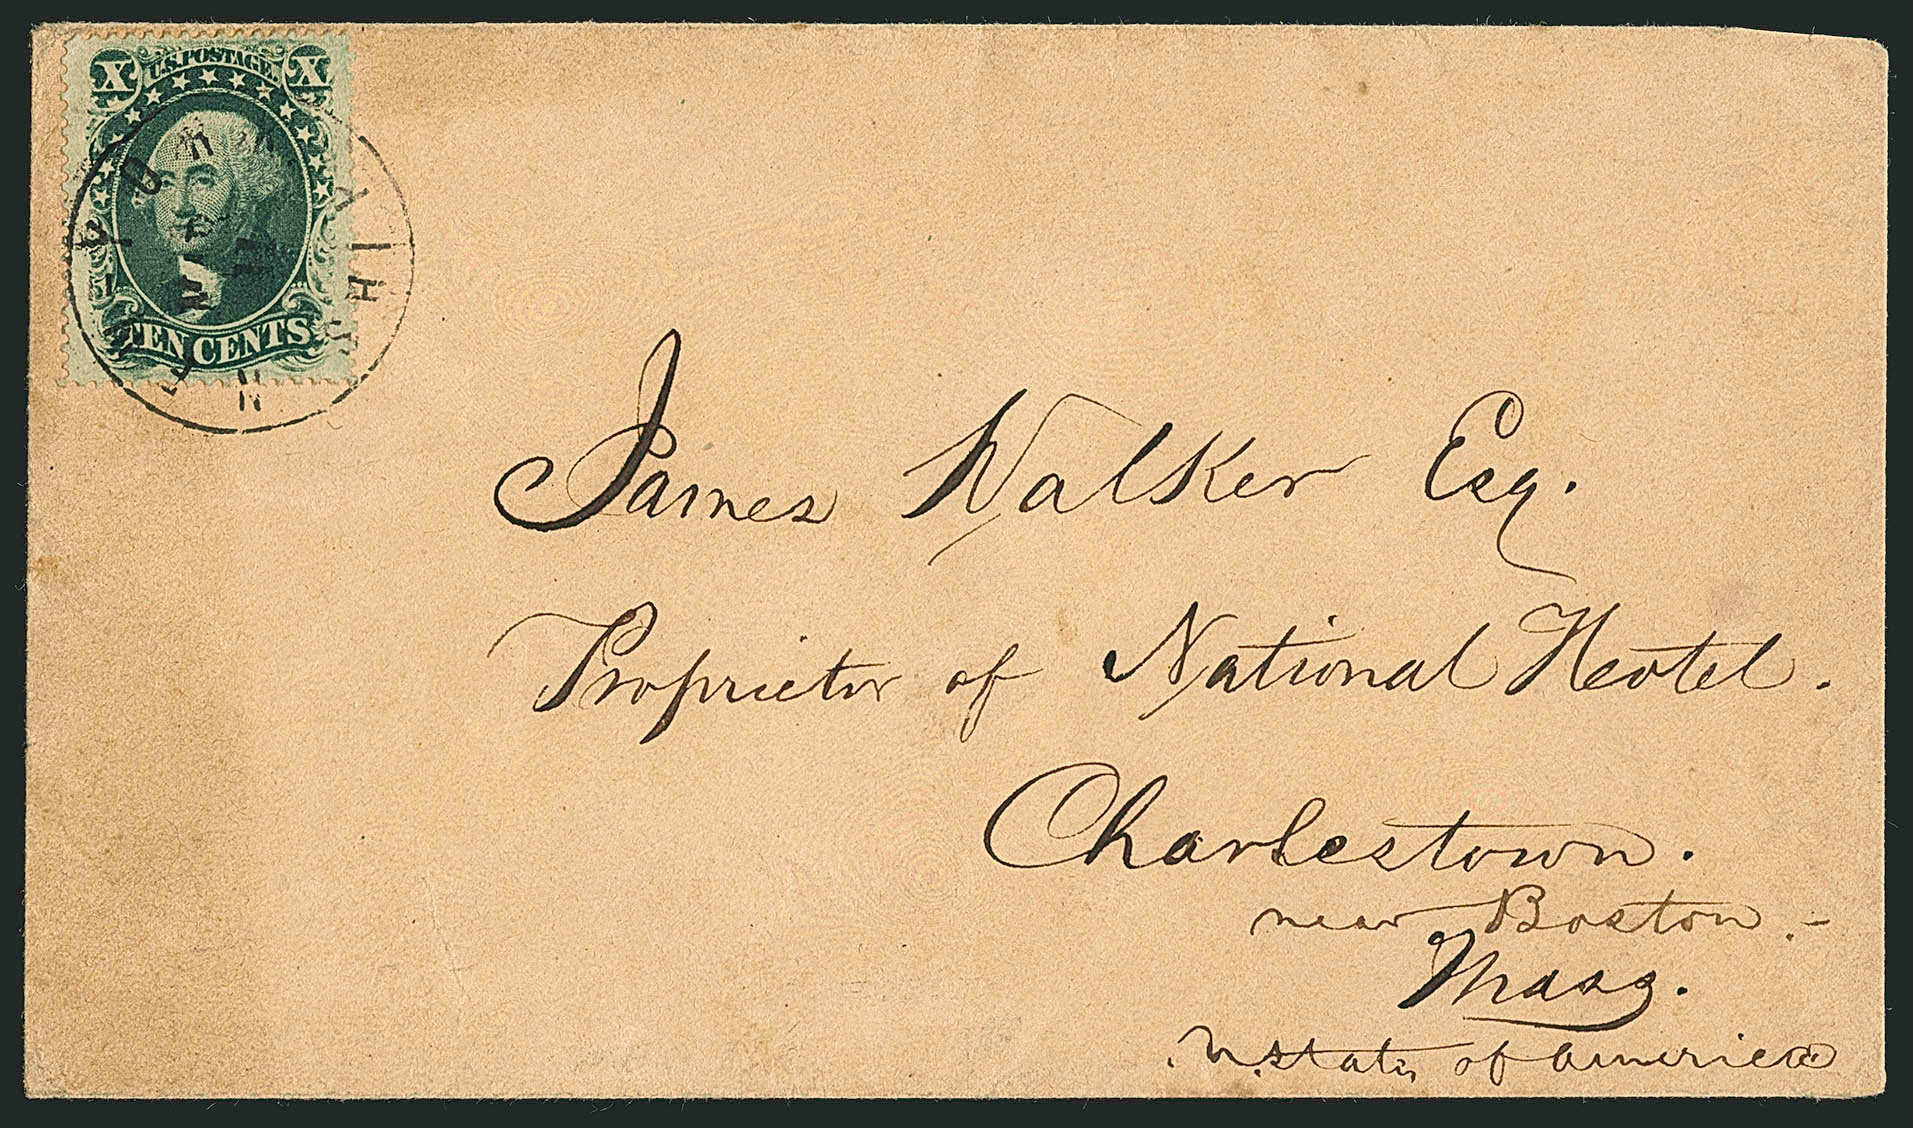 X U.S. POSTAGE. X
TEN CENTS
James Walker Esq.
Proprietor of National Heotel.
Charlestown.
near Boston.-
Mass.
U. States of America